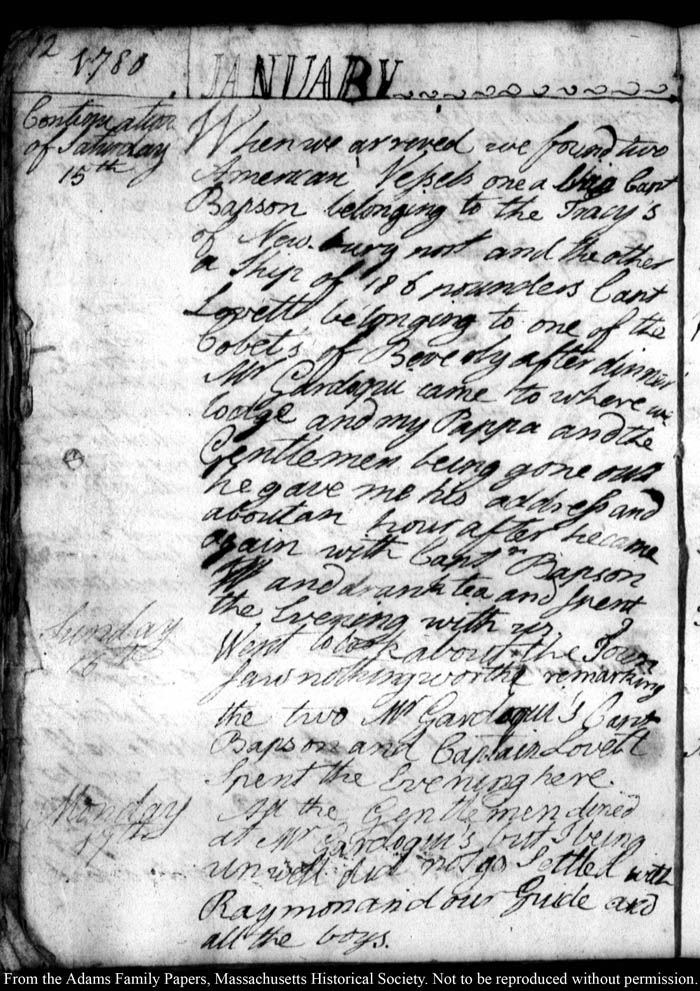 12
1780 JANUARY
Continuation
of Saturday
15th
When we arrived we found two
American Vessels one a brig Capt
Bapson belonging to the Tracy's
of New-bury port and the other
a Ship of 18 6 pounders Capt
Lovett belonging to one of the
Cobets of Beverly after dinner
Mr Gardoqui came to where we
lodge and my Pappa and the
Gentlemen being gone out
he gave me his address and
about an hour after he came
again with Captn Bapson
and drank tea and spent
the Evening with us
Sunday
16th
Went to look about the Town
Saw nothing worthe remarking
the two Mr Gardoqui's Capt
Bapson and Captain Lovett
Spent the Evening here.
Monday
17th
All the Gentlemen dined
at Mr Gardoqui's but I being
unwell did not go Settled with
Raymon and our Guide and
all the boys.
From the Adams Family Papers, Massachusetts Historical Society. Not to be reproduced without permission